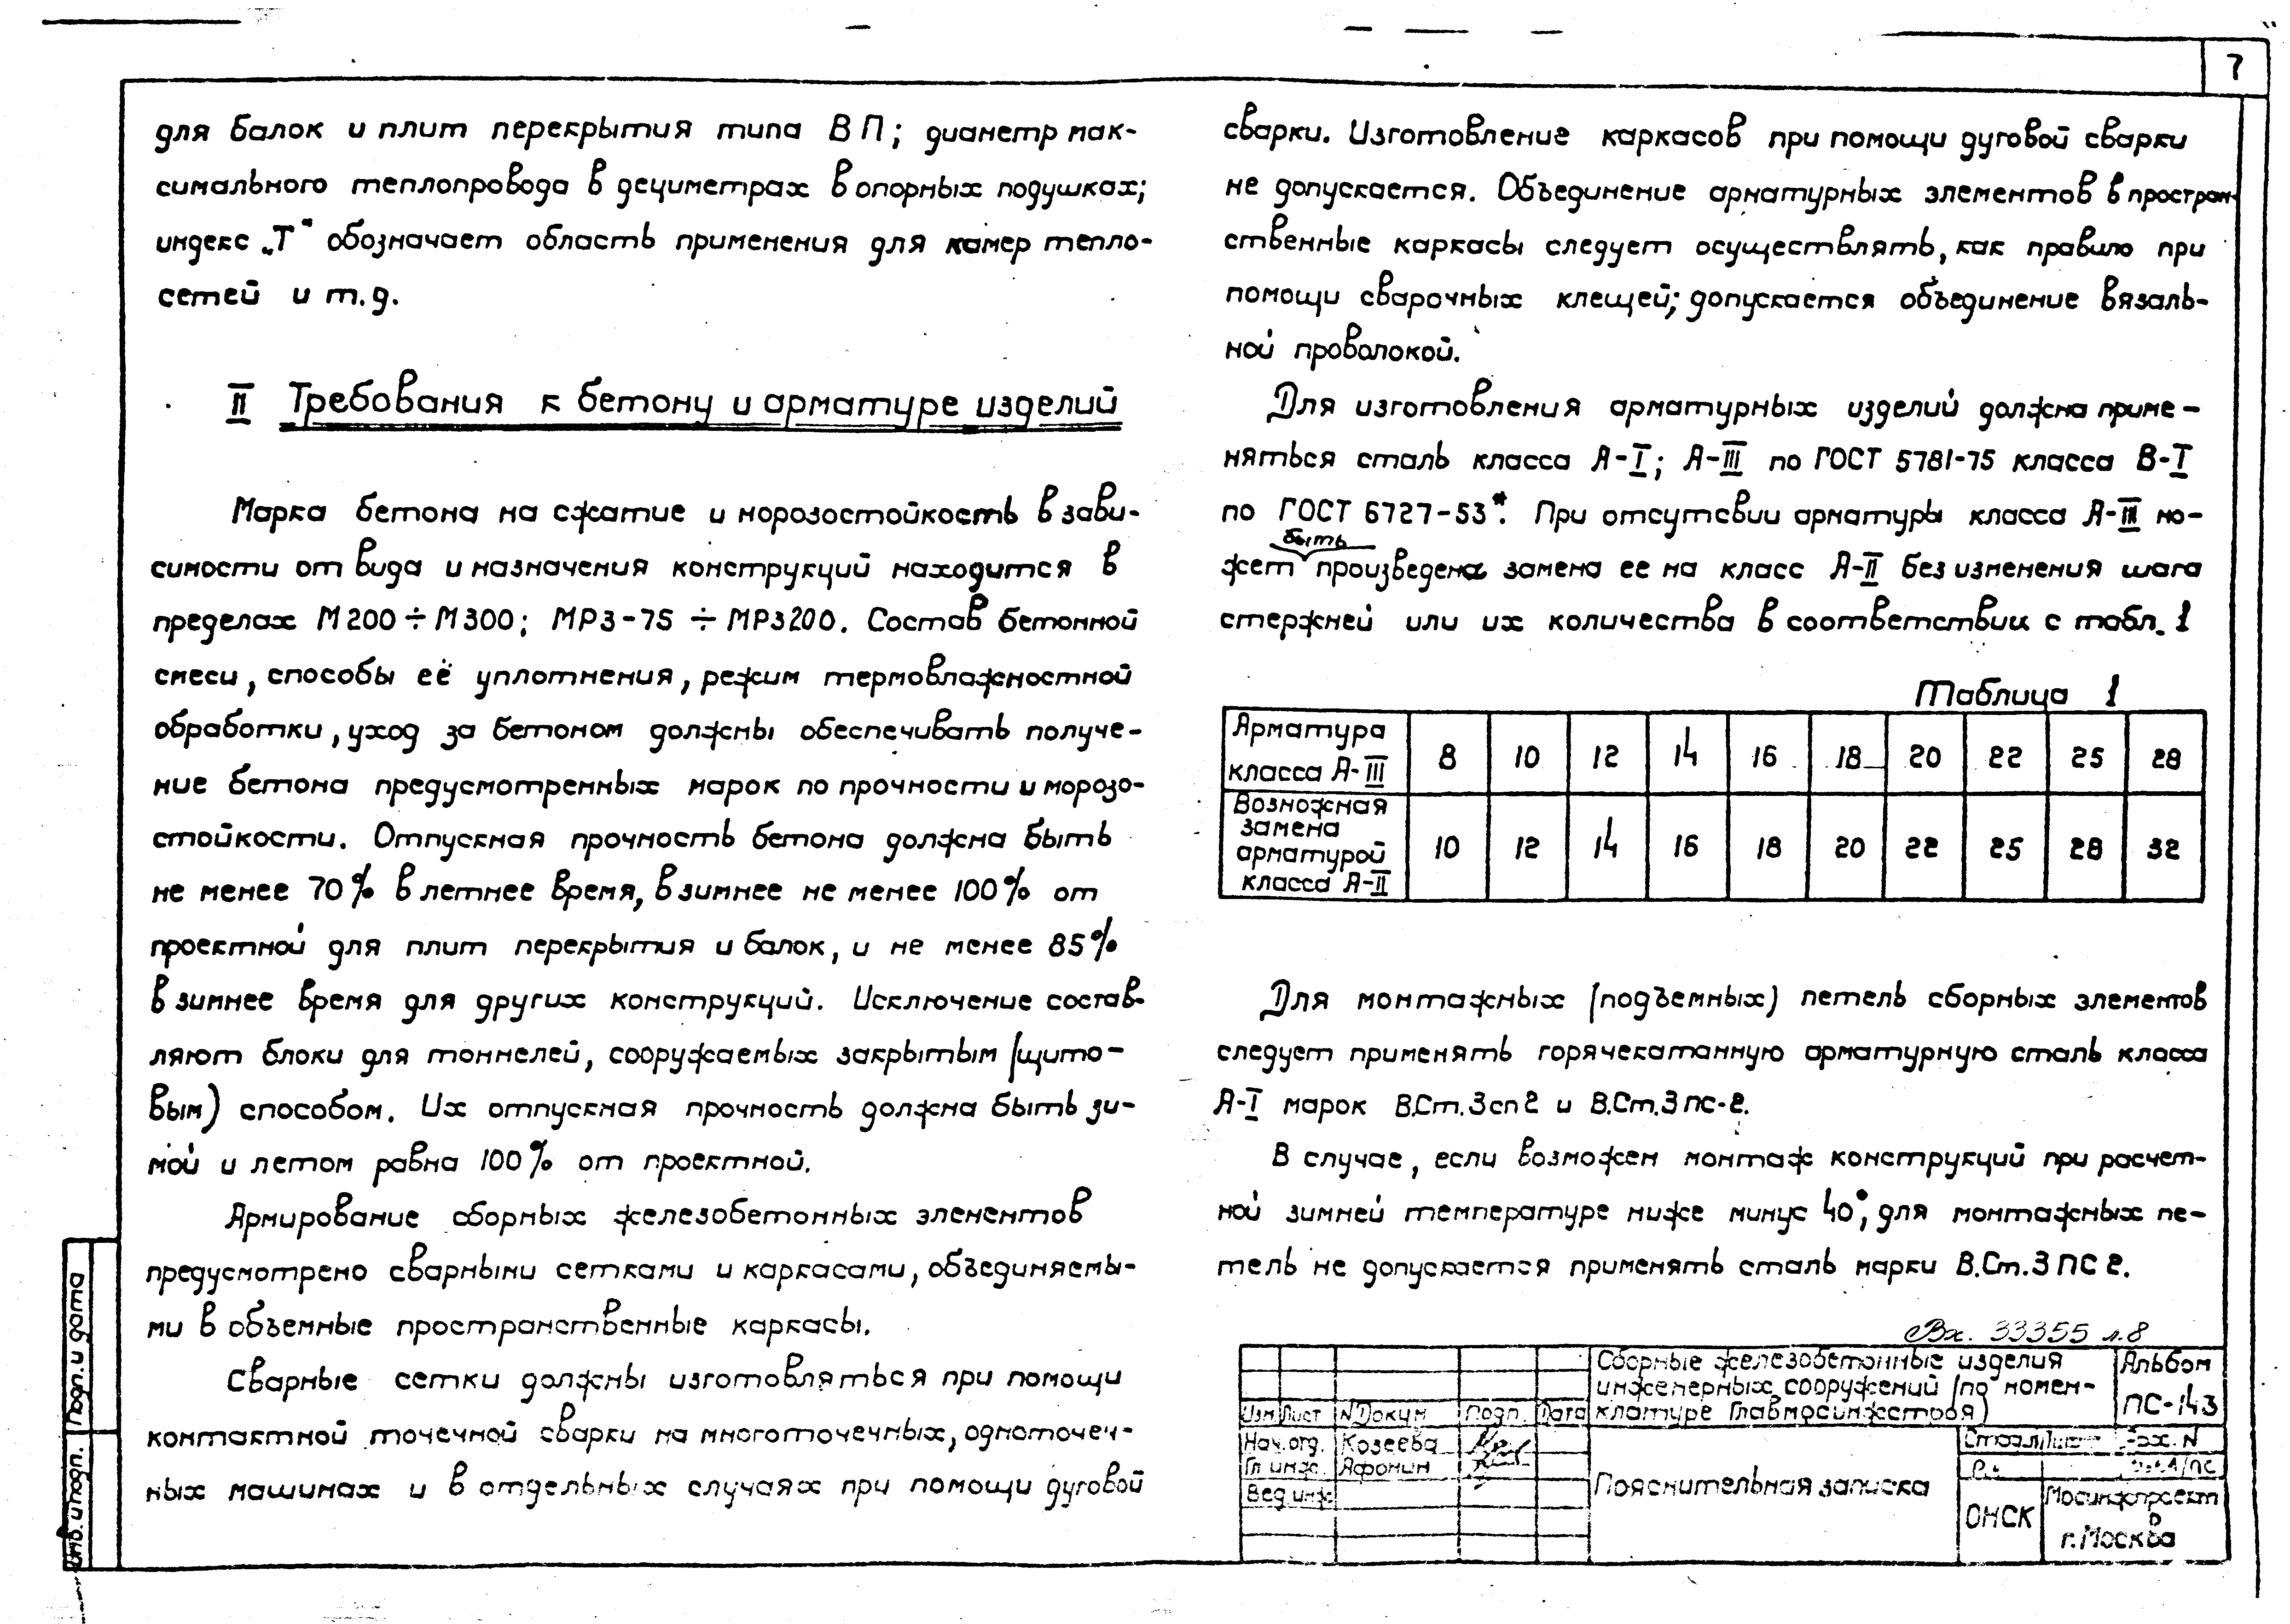 7
для балок и плит перекрытия типа ВП; диаметр мак-
симального теплопровода в дециметрах в опорных подушках;
индекс „Т“ обозначает область применения для камер тепло-
сетей и т.д.
II Требования к бетону и арматуре изделий
Марка бетона на сжатие и морозостойкость в зави-
симости от вида и назначения конструкций находится в
пределах М200÷М300; МРЗ-75 ÷ МРЗ200. Состав бетонной
смеси, способы её уплотнения, режим термовлажностной
обработки, уход за бетоном должны обеспечивать получе-
ние бетона предусмотренных марок по прочности и морозо-
стойкости. Отпускная прочность бетона должна быть
не менее 70% в летнее время, в зимнее не менее 100% от
проектной для плит перекрытия и балок, и не менее 85%
в зимнее время для других конструкций. Исключение состав-
ляют блоки для тоннелей, сооружаемых закрытым (щито-
вым) способом. Их отпускная прочность должна быть зи-
мой и летом равна 100% от проектной.
Армирование сборных железобетонных элементов
предусмотрено сварными сетками и каркасами, объединяемы-
ми в объемные пространственные каркасы.
Сварные сетки должны изготовляться при помощи
контактной точечной сварки на многоточечных, одноточеч-
ных машинах и в отдельных случаях при помощи дуговой
сварки. Изготовление каркасов при помощи дуговой сварки
не допускается. Объединение арматурных элементов в простран-
ственные каркасы следует осуществлять, как правило при
помощи сварочных клещей; допускается объединение вязаль-
ной проволокой.
Для изготовления арматурных изделий должна приме-
няться сталь класса А-I; А-III по ГОСТ 5781-75 класса В-I
по ГОСТ 6727-53*. При отсутсвии арматуры класса А-III мо-
жет быть произведена замена ее на класс А-II без изменения шага
стержней или их количества в соответствии с табл. 1
Таблица 1
Арматура класса А-III 8 10 12 14 16 18 20 22 25 28
Возможная замена арматурой класса А-II 10 12 14 16 18 20 22 25 28 32
Для монтажных (подъемных) петель сборных элементов
следует применять горячекатанную арматурную сталь класса
А-I марок В.Ст.3сп2 и В.Ст.3пс-2.
В случае, если возможен монтаж конструкций при расчет-
ной зимней температуре ниже минус 40°, для монтажных пе-
тель не допускается применять сталь марки В.Ст.3ПС2.
Вх. 33355 л.8
Сборные железобетонные изделия
инженерных сооружений (по номен-
клатуре Главмосинжстроя)
Альбом
ПС-143
Изм. Лист N Докум Подп. Дата
Нач.отд. Козеева
Гл инж. Афонин
Вед инж
Пояснительная записка
ОНСК
Мосинжпроект
г.Москва
Подп. и дата
Инв. и подп.